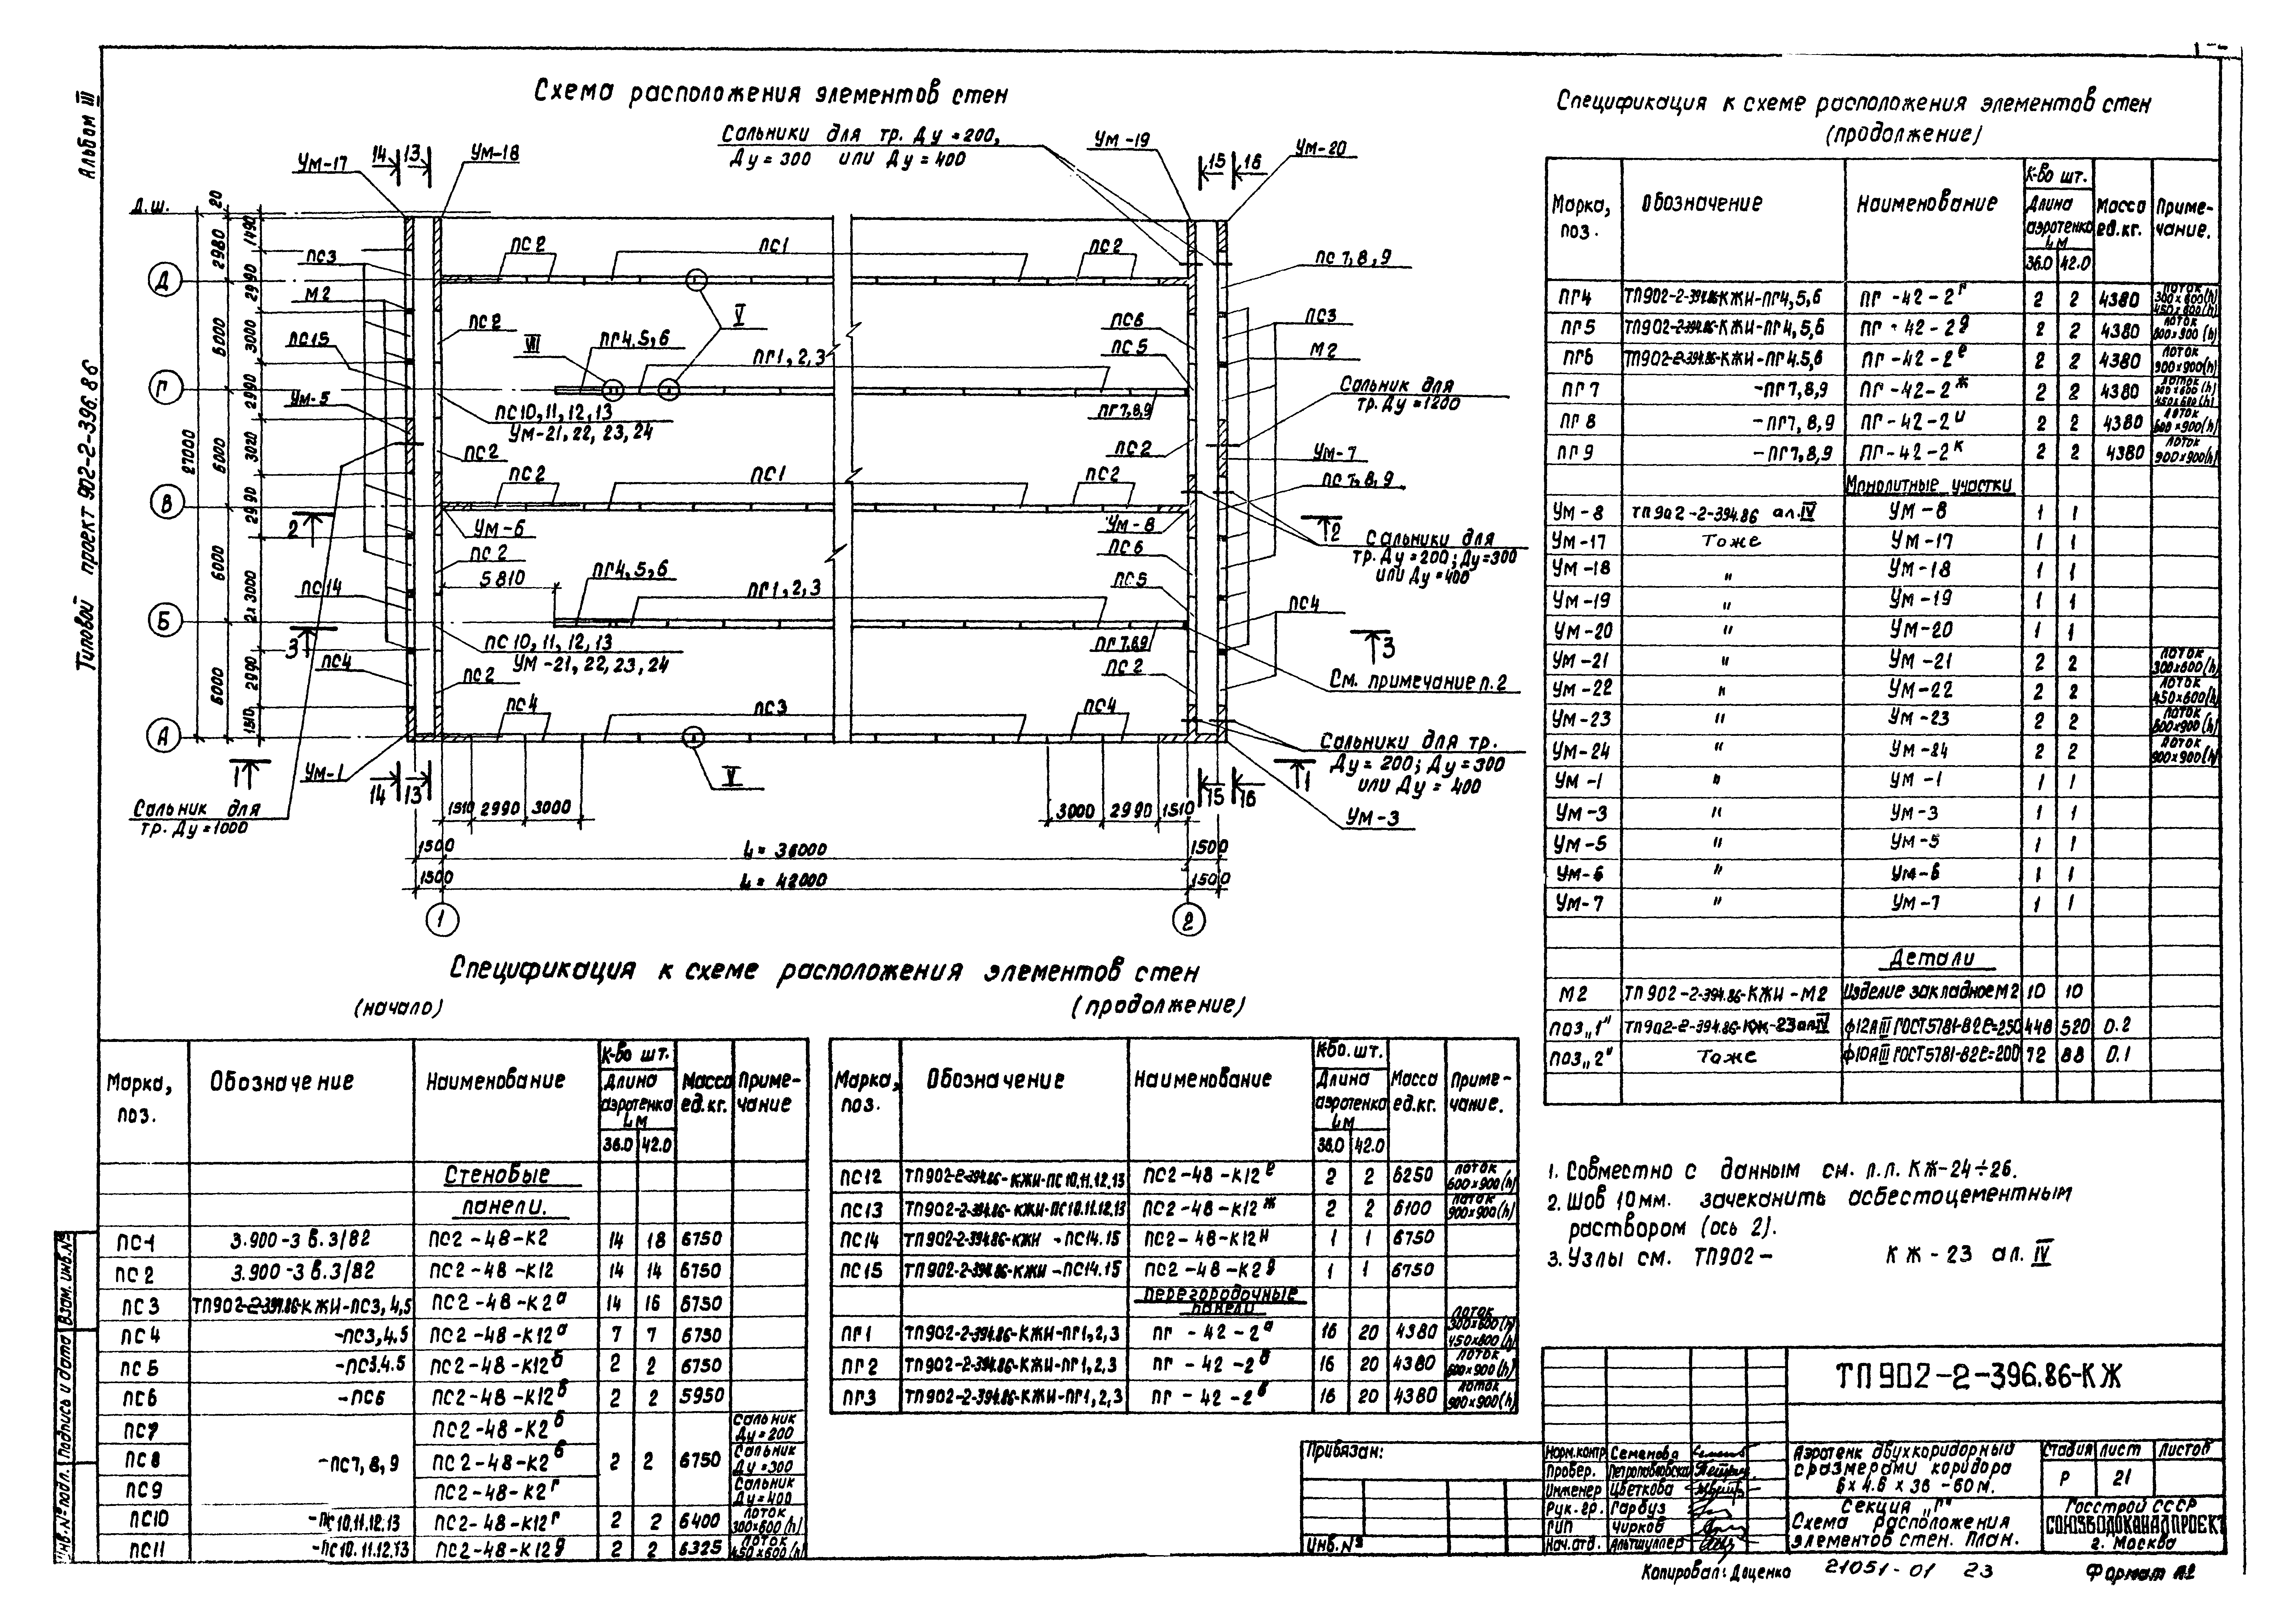 Альбом III
Типовой проект 902-2-396.86
Схема расположения элементов стен
Сальники для тр. Ду = 200,
Ду = 300 или Ду = 400
Ум-17
14 13
Ум-18
Ум-19
15 16
Ум-20
Д.Ш.
20
2980
1490
2990
6000
3000
2990
27000
6000
3020
2990
6000
2 х 3000
2990
6000
1510
Д
Г
В
Б
А
ПС3
М2
ПС15
Ум-5
ПС14
ПС4
Ум-1
Сальник для
тр. Ду=1000
ПС2
ПС1
ПС2
ПС2
V
VII
ПГ4,5,6
ПГ1,2,3
ПС6
ПС5
ПС10,11,12,13
Ум-21,22,23,24
ПГ7,8,9
ПС2
ПС2
ПС2
ПС1
ПС2
Ум-6
Ум-8
ПС2
5810
ПГ4,5,6
ПГ1,2,3
ПС6
ПС5
ПС10,11,12,13
Ум-21,22,23,24
ПГ7,8,9
ПС2
ПС2
ПС4
ПС3
ПС4
V
ПС7,8,9
ПС3
М2
Сальник для
тр. Ду=1200
Ум-7
ПС7,8,9
2
2
Сальники для
тр. Ду=200; Ду=300
или Ду=400
ПС4
3
3
См. примечание п.2
Сальники для тр.
Ду = 200; Ду = 300
или Ду = 400
1
1
14 13
15 16
Ум-3
1510 2990 3000
3000 2990 1510
1500 L = 36000 1500
1500 L = 42000 1500
1 2
Спецификация к схеме расположения элементов стен
(начало)
(продолжение)
Марка, поз. Обозначение Наименование К-во шт. Длина аэротенка L м 36.0 42.0 Масса ед.кг. Примечание
Стеновые
панели.
ПС-1 3.900-3 в.3/82 ПС2-48-К2 14 18 6750
ПС2 3.900-3 в.3/82 ПС2-48-К12 14 14 6750
ПС3 ТП902-2-394.86-КЖИ-ПС3,4,5 ПС2-48-К2а 14 16 6750
ПС4 -ПС3,4.5 ПС2-48-К12а 7 7 6750
ПС5 -ПС3.4.5 ПС2-48-К12б 2 2 6750
ПС6 -ПС6 ПС2-48-К12в 2 2 5950
ПС7 ПС2-48-К2б Сальник Ду=200
ПС8 -ПС7,8,9 ПС2-48-К2в 2 2 6750 Сальник Ду=300
ПС9 ПС2-48-К2г Сальник Ду=400
ПС10 -ПС10.11.12.13 ПС2-48-К12г 2 2 6400 Лоток 300х600(h)
ПС11 -ПС10.11.12.13 ПС2-48-К12д 2 2 6325 Лоток 450х600(h)
Марка, поз. Обозначение Наименование К-во.шт. Длина аэротенка L м 36.0 42.0 Масса ед.кг. Примечание.
ПС12 ТП902-2-394.86-КЖИ-ПС10.11.12.13 ПС2-48-К12е 2 2 6250 Лоток 600х900(h)
ПС13 ТП902-2-394.86-КЖИ-ПС10.11.12.13 ПС2-48-К12ж 2 2 6100 Лоток 900х900(h)
ПС14 ТП902-2-394.86-КЖИ-ПС14.15 ПС2-48-К12и 1 1 6750
ПС15 ТП902-2-394.86-КЖИ-ПС14.15 ПС2-48-К2д 1 1 6750
Перегородочные
панели
ПГ1 ТП902-2-394.86-КЖИ-ПГ1,2,3 ПГ-42-2а 16 20 4380 Лоток 300х600(h) 450х600(h)
ПГ2 ТП902-2-394.86-КЖИ-ПГ1,2,3 ПГ-42-2б 16 20 4380 Лоток 600х900(h)
ПГ3 ТП902-2-394.86-КЖИ-ПГ1,2,3 ПГ-42-2в 16 20 4380 Лоток 900х900(h)
Спецификация к схеме расположения элементов стен
(продолжение)
Марка, поз. Обозначение Наименование К-во шт. Длина аэротенка L м 36.0 42.0 Масса ед.кг. Примечание.
ПГ4 ТП902-2-394.86-КЖИ-ПГ4,5,6 ПГ-42-2г 2 2 4380 Лоток 300х600(h) 450х600(h)
ПГ5 ТП902-2-394.86-КЖИ-ПГ4,5,6 ПГ-42-2д 2 2 4380 Лоток 600х900(h)
ПГ6 ТП902-2-394.86-КЖИ-ПГ4.5,6 ПГ-42-2е 2 2 4380 Лоток 900х900(h)
ПГ7 -ПГ7,8,9 ПГ-42-2ж 2 2 4380 Лоток 300х600(h) 450х600(h)
ПГ8 -ПГ7,8,9 ПГ-42-2и 2 2 4380 Лоток 600х900(h)
ПГ9 -ПГ7,8,9 ПГ-42-2к 2 2 4380 Лоток 900х900(h)
Монолитные участки
Ум-8 ТП902-2-394.86 ал.IV Ум-8 1 1
Ум-17 Тоже Ум-17 1 1
Ум-18 " Ум-18 1 1
Ум-19 " Ум-19 1 1
Ум-20 " Ум-20 1 1
Ум-21 " Ум-21 2 2 Лоток 300х600(h)
Ум-22 " Ум-22 2 2 Лоток 450х600(h)
Ум-23 " Ум-23 2 2 Лоток 600х900(h)
Ум-24 " Ум-24 2 2 Лоток 900х900(h)
Ум-1 " Ум-1 1 1
Ум-3 " Ум-3 1 1
Ум-5 " Ум-5 1 1
Ум-6 " Ум-6 1 1
Ум-7 " Ум-7 1 1
Детали
М2 ТП902-2-394.86-КЖИ-М2 Изделие закладное М2 10 10
поз„1" ТП902-2-394.86-КЖ-23 ал.IV ф12АIII ГОСТ5781-82 ℓ=250 448 520 0.2
поз„2" Тоже ф10АIII ГОСТ5781-82 ℓ=200 72 88 0.1
1. Совместно с данным см. л.л. КЖ-24÷26.
2. Шов 10мм. зачеканить асбестоцементным
раствором (ось 2).
3. Узлы см. ТП902- КЖ-23 ал. IV
Привязан:
Инв.№
ТП902-2-396.86-КЖ
Норм.контр Семенова
Провер. Петропавловская
Инженер Цветкова
Рук.гр. Гарбуз
ГИП Чирков
Нач.отд. Альтшуллер
Аэротенк двухкоридорный
с размерами коридора
6х4.6х36-60м.
Секция „Г"
Схема расположения
элементов стен. План.
Стадия Лист Листов
Р 21
Госстрой СССР
СОЮЗВОДОКАНАЛПРОЕКТ
г. Москва
Инв.№подл. Подпись и дата Взам.инв.№
Копировал: Доценко
21051-01 23
Формат А2